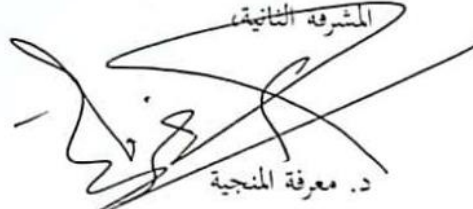 المشرفة الثانية،
د. معرفة المنجية